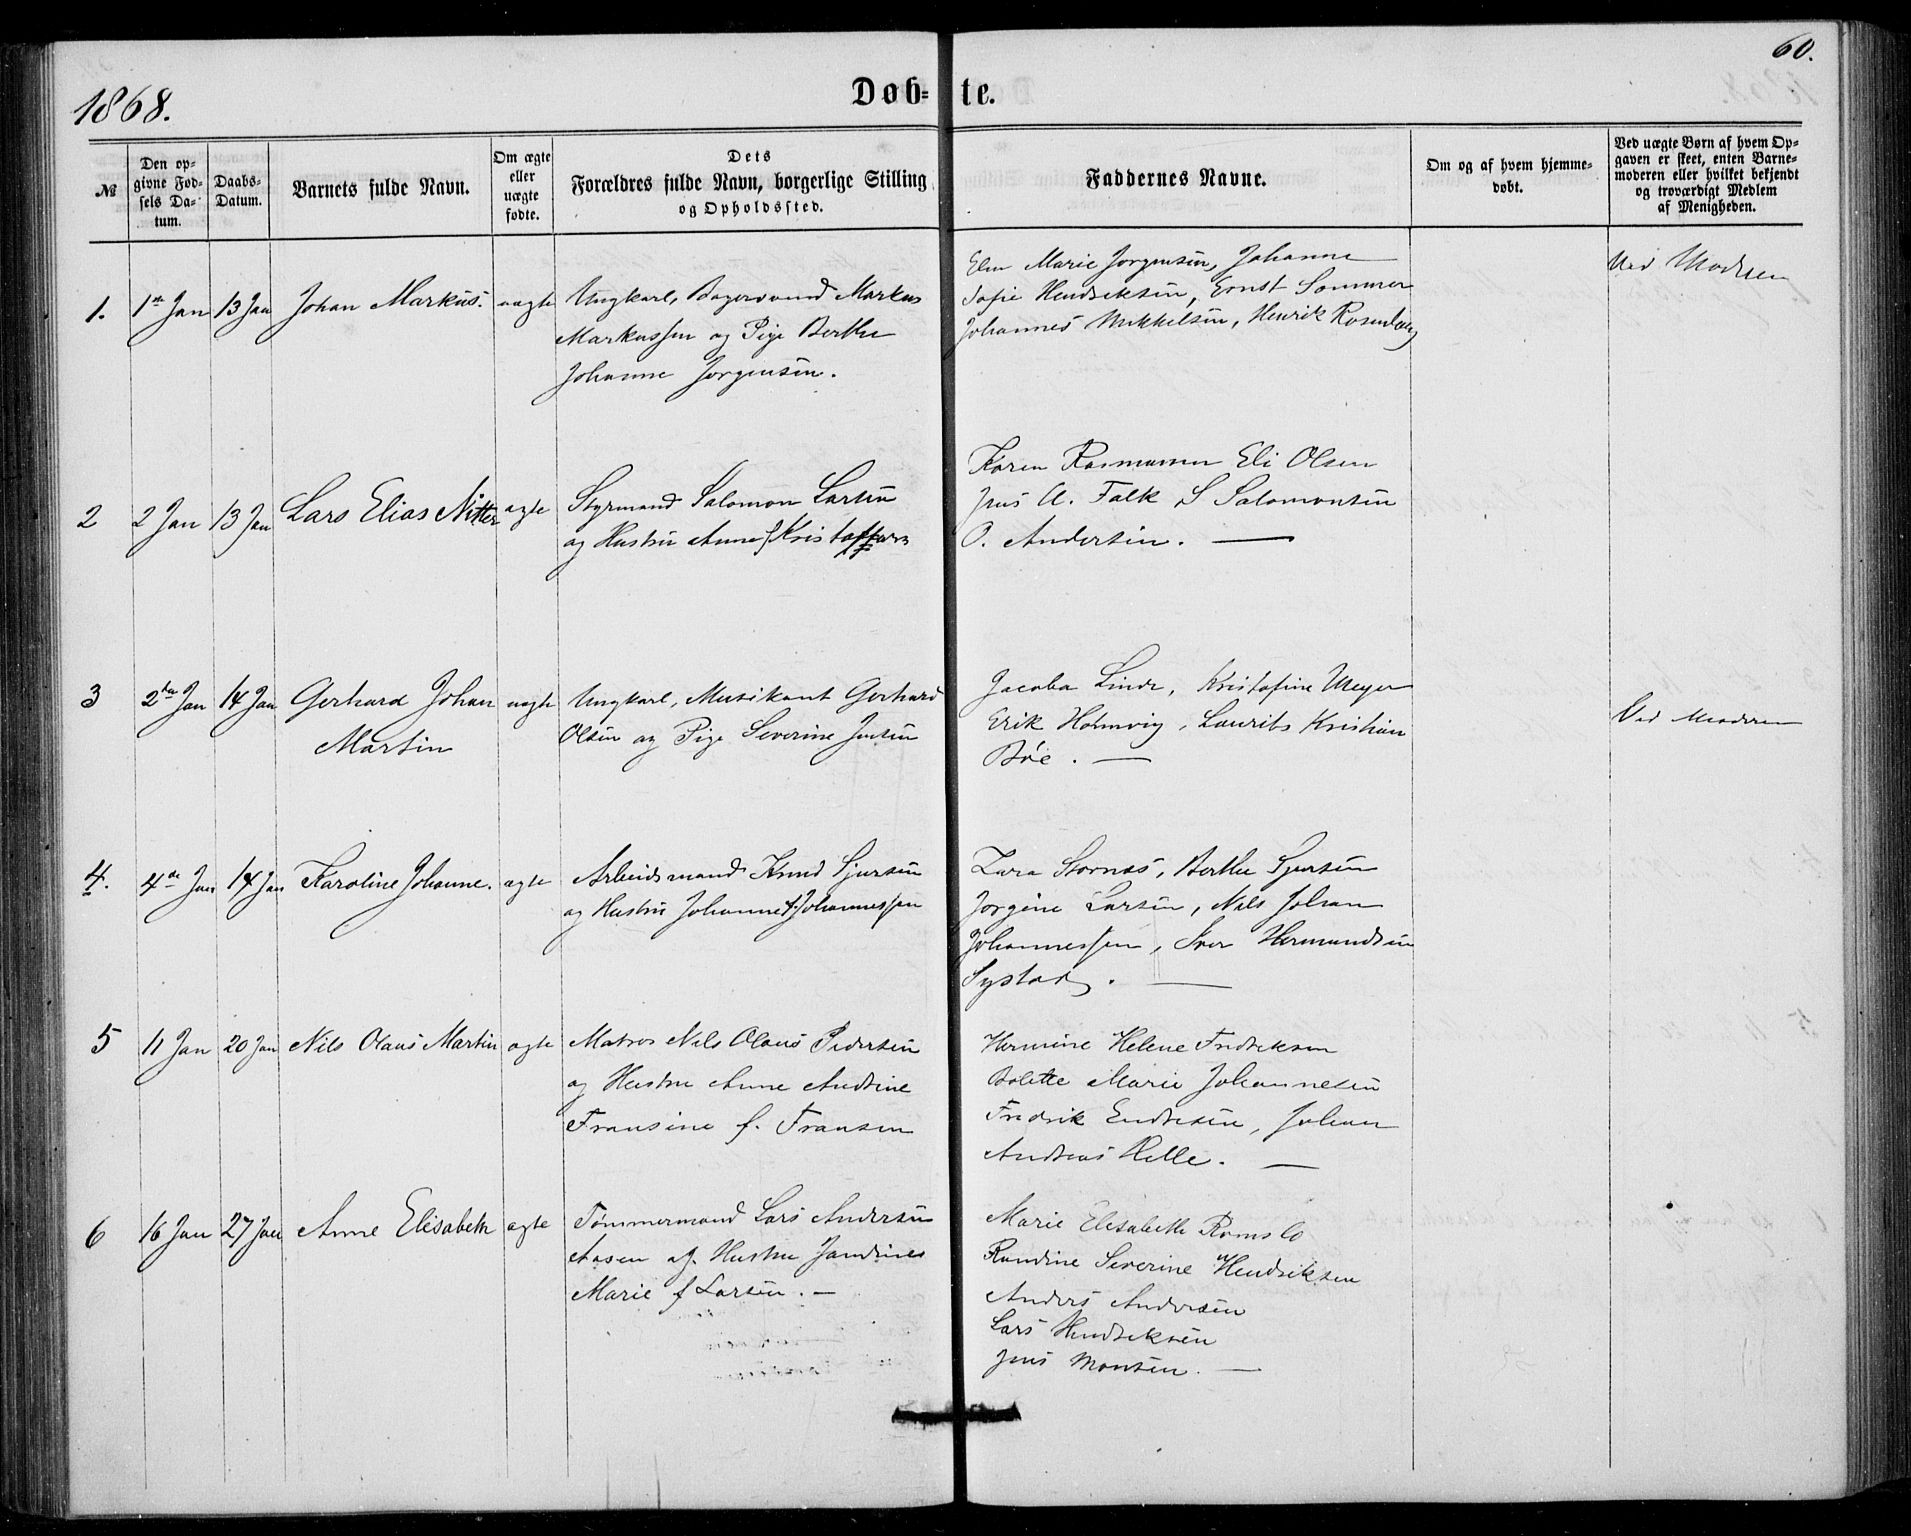 1868.
Døb- te.
60.
№
Den op-
givne Fød-
sels Da-
tum.
Daabs-
Datum.
Barnets fulde Navn.
Om ægte
eller
uægte
fødte.
Dets
Forældres fulde Navn, borgerlige Stilling
og Opholdssted.
Faddernes Navne.
Om og af hvem hjemme-
døbt.
Ved uægte Børn af hvem Op-
gaven er skeet, enten Barne-
moderen eller hvilket bekjendt
og troværdigt Medlem
af Menigheden.
1. 1ste Jan 13 Jan Johan Markus. uægte
Ungkarl, Bagersvend Markus
Markussen og Pige Berthe
Johanne Jørgensen.
Elen Marie Jørgensen, Johanne
Sofie Hendriksen, Ernst Sommer
Johannes Mikkelsen, Henrik Rosenberg
Ved Moderen
2 2 Jan 13 Jan Lars Elias Nitter ægte
Styrmand Salomon Larsen
og Hustru Anne f Kristoffersen
Karen Rasmussen Eli Olsen
Jens A. Falk S Salomonsen
O. Andersen.
3 2den Jan 14 Jan Gerhard Johan
Martin
uægte
Ungkarl, Musikant Gerhard
Olsen og Pige Severine Jensen
Jacoba Linde, Kristofine Meyer
Erik Holmvig, Laurits Kristian
Bøe.
Ved Moderen
4. 4de Jan 14 Jan Karoline Johanne. ægte
Arbeidsmand Knud Sjursen
og Hustru Johanne f. Johannessen
Lara Stornæs, Berthe Sjursen
Jørgine Larsen, Nils Johan
Johannessen, Iver Hermundsen
Systad.
5 11 Jan 20 Jan Nils Olaus Martin ægte
Matros Nils Olaus Pedersen
og Hustru Anne Andrine
Fransine f. Fransen
Hermine Helene Fredriksen
Bolette Marie Johannesen
Fredrik Endresen, Johan
Andreas Helle.
6 16 Jan 27 Jan Anne Elisabeth ægte
Tømmermand Lars Andersen
Aasen og Hustru Jandine
Marie f Larsen.
Marie Elisabeth Romslo
Randine Severine Hendriksen
Anders Andersen
Lars Hendriksen
Jens Monsen.